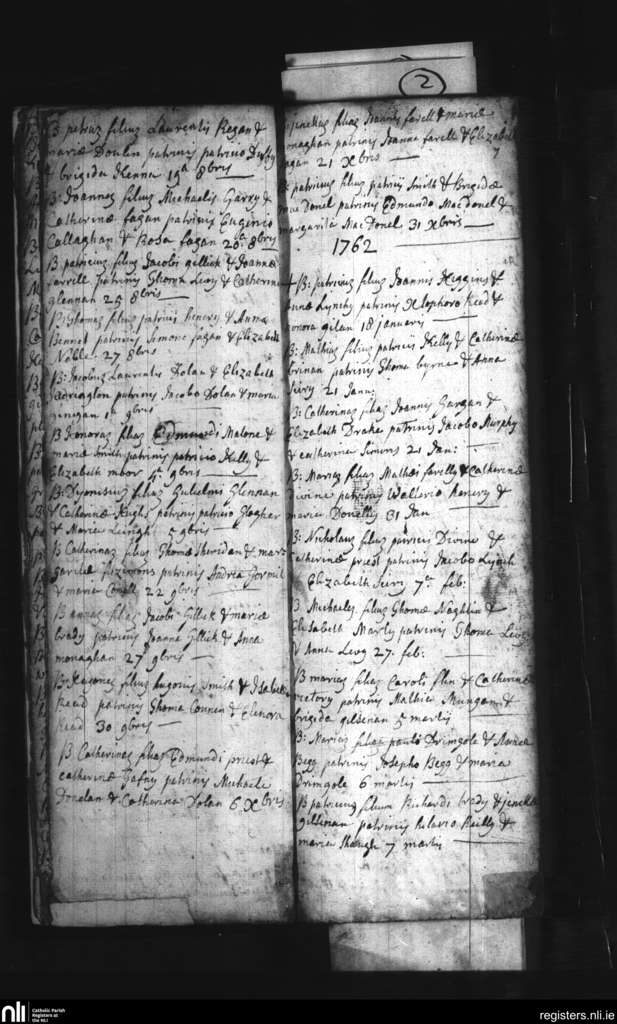 2
B petrus filius Laurentis Regan &
mariæ Doulin patrinis patricio Duffy
& brigida Kenna 19ª 8bris
B: Joannes filius Michaelis Garry &
Catherinæ fagan patrinis Eugenio
Callaghan & Rosa fagan 20ª 8bris
B patricius filius Jacobi gillick & Joannæ
farrill patrinis Thoma Levy & Catherina
glennan 25 8bris
B: Thomas filius patricii henery & Annæ
Bennet patrinis Simone fagan & Elizabeth
Noble 27 8bris
B: Jacobus Laurentis Dolan & Elizabeth
patrinis Jacobo Dolan & maria
1ª 9bris
B Honoras filias Edmundi Malone &
mariæ Smith patrinis patricio Kelly &
Elizabeth moor 4ª 9bris
B: Dyonisius filius Gulielmi Glennan
& Catherinæ Hughs patrinis patricio
& Maria 5 9bris
B Catherinas filias Thomæ Sheridan &
fizsimons patrinis Andrea Gormil
& maria 22 9bris
B annas filias Jacobi Gillick & mariæ
brady patrinis Joanne Gillick & Anna
monaghan 27 9bris
B: filius hugonis Smith &
Read patrinis Thoma & Elenora
Read 30 9bris
B Catherinas filias Edmundi priest &
catherinæ Gafny patrinis Michaele
Donelan & Catherina Dolan 6 Xbris
filias Joannis farell & mariæ
monaghan patrinis Joanne farell & Elizabeth
21 Xbris
B: patricius filius patricii Smith & Brigidæ
mac Donel patrinis Edmundo Mac Donel &
margarita Mac Donel 31 Xbris
1762
+ B: patricius filius Joannis Higgins &
Annæ Lynchy patrinis Xtophoro Read &
honora gilan 18 january
B: Mathias filius patricii Kelly & Catherinæ
brinan patrinis Thoma byrne & Anna
21 Janu:
B: Catherinas filias Joannis Gargan &
Elizabeth Drake patrinis Jacobo Murphy
& catherina Simons 21 Jan:
B: Marias filias Mathei farelly & Catherinæ
Divine patrinis Wallerio henery &
maria Donelly 31 Jan
B: Nicholaus filius patricii Divine &
Catherinæ priest patrinis Jacobo Lynch
Elizabeth 7ª feb:
B Michaeles filius Thomæ Naghlin &
Elisabeth Martly patrinis Thoma Levy
& Anna Levy 27 feb:
B marias filias Caroli flin & Catherinæ
rectory patrinis Mathies Mungan &
brigida gilsenan 5 martis
B: Marias filias pauli Drimgole & Annæ
Begg patrinis Josepho Begg & maria
Drimgole 6 martis
B patricius filium Richardi brady &
gilsenan patrinis Relly &
maria 7 martis
nli
Catholic Parish
Registers at
the NLI
registers.nli.ie